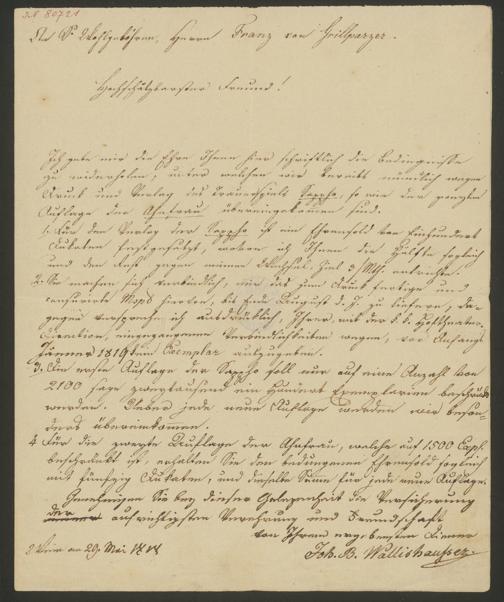 I.N. 80721
An Sr Wohlgebohren, Herrn Franz von Grillparzer.
Hochschätzbarster Freund!
Ich gebe mir die Ehre Ihnen hier schriftlich die Bedingnisse
zu wiederholen, unter welchen wir bereits mündlich wegen
Druck und Verlag des Trauerspiels Sappho, so wie der zweyten
Auflage der Ahnfrau übereingekommen sind.
1. Für den Verlag der Sappho ist ein Ehrensold von Einhundert
Dukaten festgesetzt, wovon ich Ihnen die Hälfte sogleich
und den Rest gegen meinen Wechsel, Ziel 3/Mth. entrichte.
2. Sie machen sich verbindlich, mir das zum Druck fertige und
censurirte Mspt hievon, bis Ende August d. J. zu liefern, da-
gegen verspreche ich ausdrücklich, Ihrer mit der k. k. Hoftheater-
Direction, eingegangenen Verbindlichkeiten wegen, vor Anfangs
Jänner 1819 kein Exemplar auszugeben.
3. Die erste Auflage der Sappho soll nur auf eine Anzahl von
2100 sage zweytausend ein Hundert Exemplarien beschränkt
werden. Ueber jede neue Auflage werden wir beson-
ders übereinkommen.
4. Für die zweyte Auflage der Ahnfrau, welche auf 1500 Expl.
beschränkt ist, erhalten Sie den bedungenen Ehrensold sogleich
mit fünfzig Dukaten, und dieselbe Summe für jede neue Auflage.
Genehmigen Sie bey dieser Gelegenheit die Versicherung
der aufrichtigsten Verehrung und Freundschaft
von Ihrem ergebensten Diener
Wien am 29 Mai 1818
Joh. B. Wallishausser